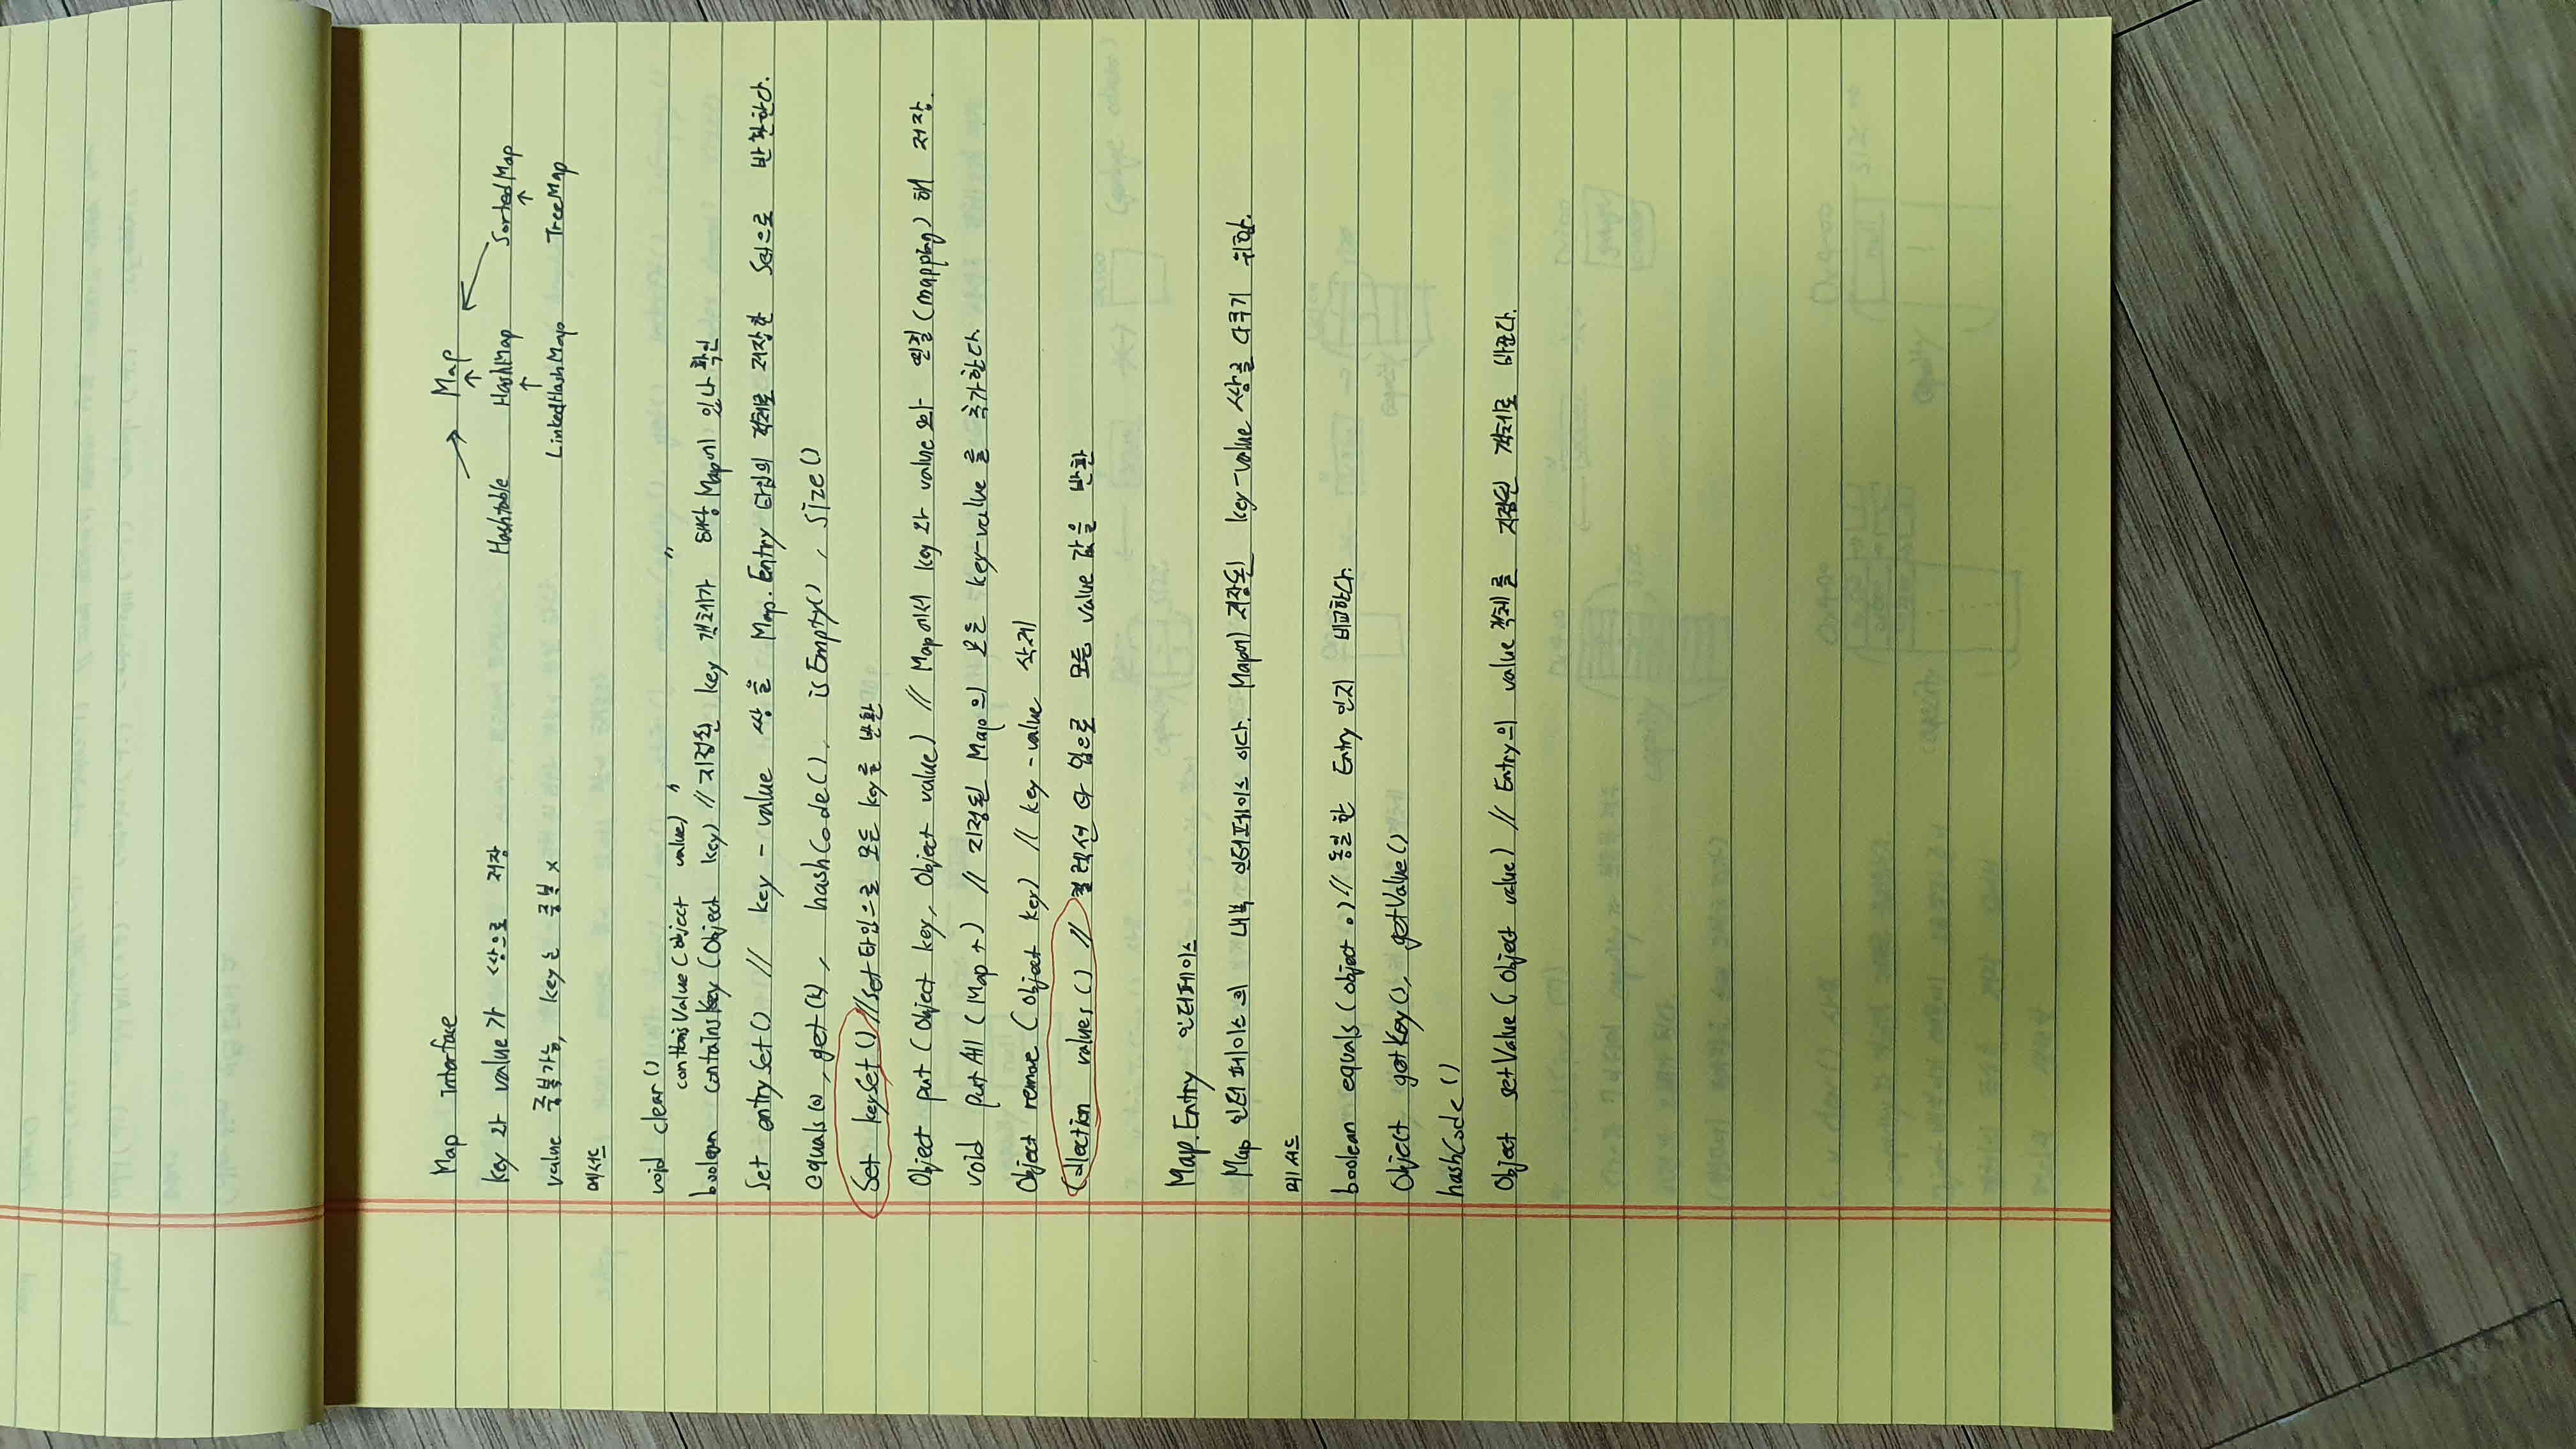 Map interface
key 와 value 가 쌍으로 저장
value 중복가능, key는 중복 x
Map
Hashtable HashMap SortedMap
LinkedHashMap TreeMap
메서드
void clear()
containsValue(Object value) 〃 〃
boolean containsKey(Object key) // 지정된 key 객체가 해당 Map에 있나 확인
Set entrySet() // key - value 쌍을 Map.Entry 타입의 객체로 저장한 Set으로 반환한다.
equals(o), get(k), hashCode(), isEmpty(), size()
Set keySet() // set타입으로 모든 key를 반환
Object put (Object key, Object value) // Map에서 key 와 value 와 연결(mapping) 해 저장.
void putAll (Map t) // 지정된 Map의 모든 key-value 를 추가한다.
Object remove (Object key) // key - value 삭제
Collection values() // 컬렉션 타입으로 모든 value 값을 반환
Map.Entry 인터페이스
Map 인터페이스의 내부 인터페이스 이다. Map에 저장된 key-value 쌍을 다루기 위함.
메서드
boolean equals (object o) // 동일한 Entry 인지 비교한다.
Object getKey(), getValue()
hashCode()
Object setValue (Object value) // Entry의 value 객체를 지정된 객체로 바꾼다.